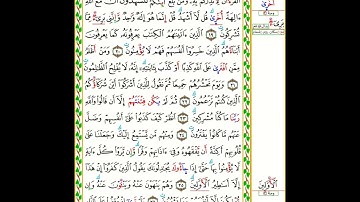 ءَالِهَةً أُخْرَىٰ قُل لَّا أَشْهَدُ قُلْ إِنَّمَا هُوَ إِلَٰهٌ وَٰحِدٌ وَإِنَّنِي بَرِيٓءٌ مِّمَّا
تُشْرِكُونَ ١٩ الَّذِينَ ءَاتَيْنَٰهُمُ الْكِتَٰبَ يَعْرِفُونَهُ كَمَا يَعْرِفُونَ
أَبْنَآءَهُمُ الَّذِينَ خَسِرُوٓا أَنفُسَهُمْ فَهُمْ لَا يُؤْمِنُونَ ٢٠ وَمَنْ أَظْلَمُ
مِمَّنِ افْتَرَىٰ عَلَى اللَّهِ كَذِبًا أَوْ كَذَّبَ بِـَٔايَٰتِهِ إِنَّهُ لَا يُفْلِحُ الظَّٰلِمُونَ
٢١ وَيَوْمَ نَحْشُرُهُمْ جَمِيعًا ثُمَّ نَقُولُ لِلَّذِينَ أَشْرَكُوٓا أَيْنَ شُرَكَآؤُكُمُ
الَّذِينَ كُنتُمْ تَزْعُمُونَ ٢٢ ثُمَّ لَمْ يَكُن فِتْنَتَهُمْ إِلَّآ أَن قَالُوا وَاللَّهِ
رَبِّنَا مَا كُنَّا مُشْرِكِينَ ٢٣ انظُرْ كَيْفَ كَذَبُوا عَلَىٰٓ أَنفُسِهِمْ وَضَلَّ
عَنْهُم مَّا كَانُوا يَفْتَرُونَ ٢٤ وَمِنْهُم مَّن يَسْتَمِعُ إِلَيْكَ وَجَعَلْنَا عَلَىٰ
قُلُوبِهِمْ أَكِنَّةً أَن يَفْقَهُوهُ وَفِيٓ ءَاذَانِهِمْ وَقْرًا وَإِن يَرَوْا كُلَّ ءَايَةٍ
لَّا يُؤْمِنُوا بِهَا حَتَّىٰٓ إِذَا جَآءُوكَ يُجَٰدِلُونَكَ يَقُولُ الَّذِينَ كَفَرُوٓا إِنْ هَٰذَآ
إِلَّآ أَسَٰطِيرُ الْأَوَّلِينَ ٢٥ وَهُمْ يَنْهَوْنَ عَنْهُ وَيَنْـَٔوْنَ عَنْهُ وَإِن
أُخْرَىٰ
بَرِيٓءٌ
الْأَوَّلِينَ